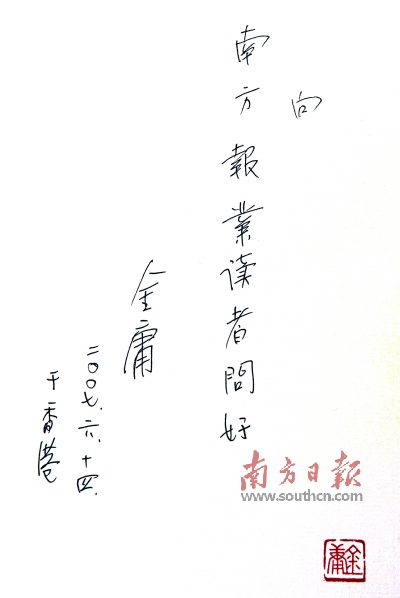 向
南方報業读者問好
金庸
二〇〇七.六.十四.
于香港
南方日报
www.southcn.com
金庸